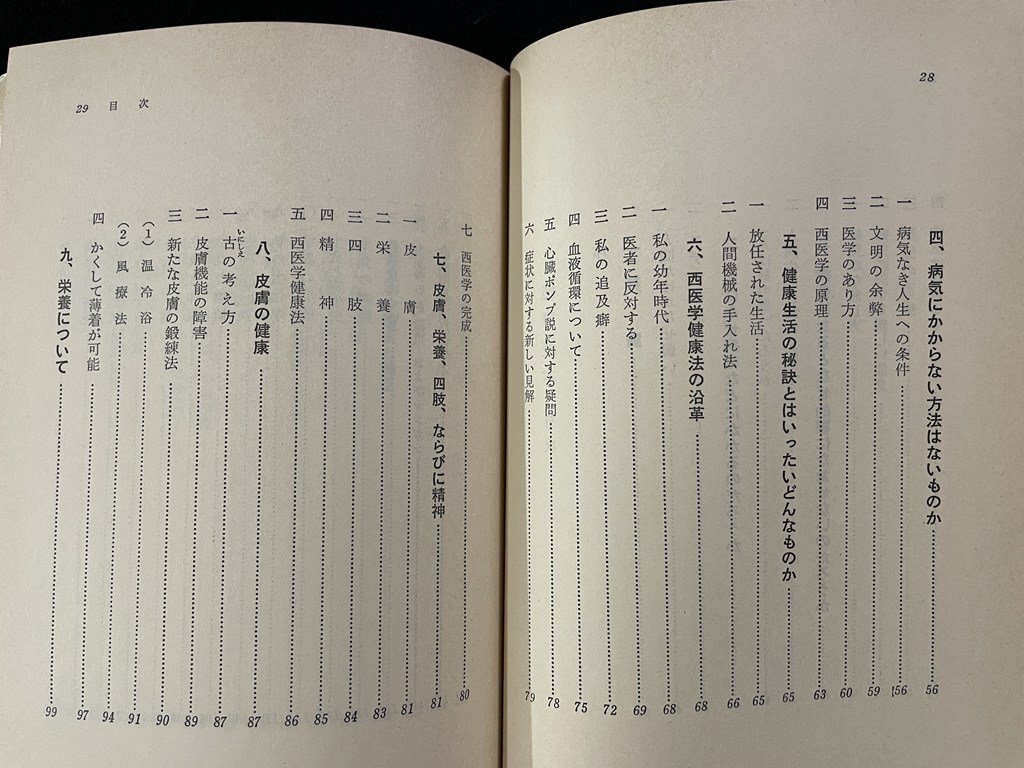 28
四、病気にかからない方法はないものか……56
一 病気なき人生への条件……56
二 文明の余弊……59
三 医学のあり方……60
四 西医学の原理……63
五、健康生活の秘訣とはいったいどんなものか……65
一 放任された生活……65
二 人間機械の手入れ法……66
六、西医学健康法の沿革……68
一 私の幼年時代……68
二 医者に反対する……69
三 私の追及癖……72
四 血液循環について……75
五 心臓ポンプ説に対する疑問……78
六 症状に対する新しい見解……79
29 目次
七 西医学の完成……80
七、皮膚、栄養、四肢、ならびに精神……81
一 皮膚……81
二 栄養……83
三 四肢……84
四 精神……85
五 西医学健康法……86
八、皮膚の健康……87
一 古の考え方……87
いにしえ
二 皮膚機能の障害……89
三 新たな皮膚の鍛練法……90
(1) 温冷浴……91
(2) 風療法……94
四 かくして薄着が可能……97
九、栄養について……99